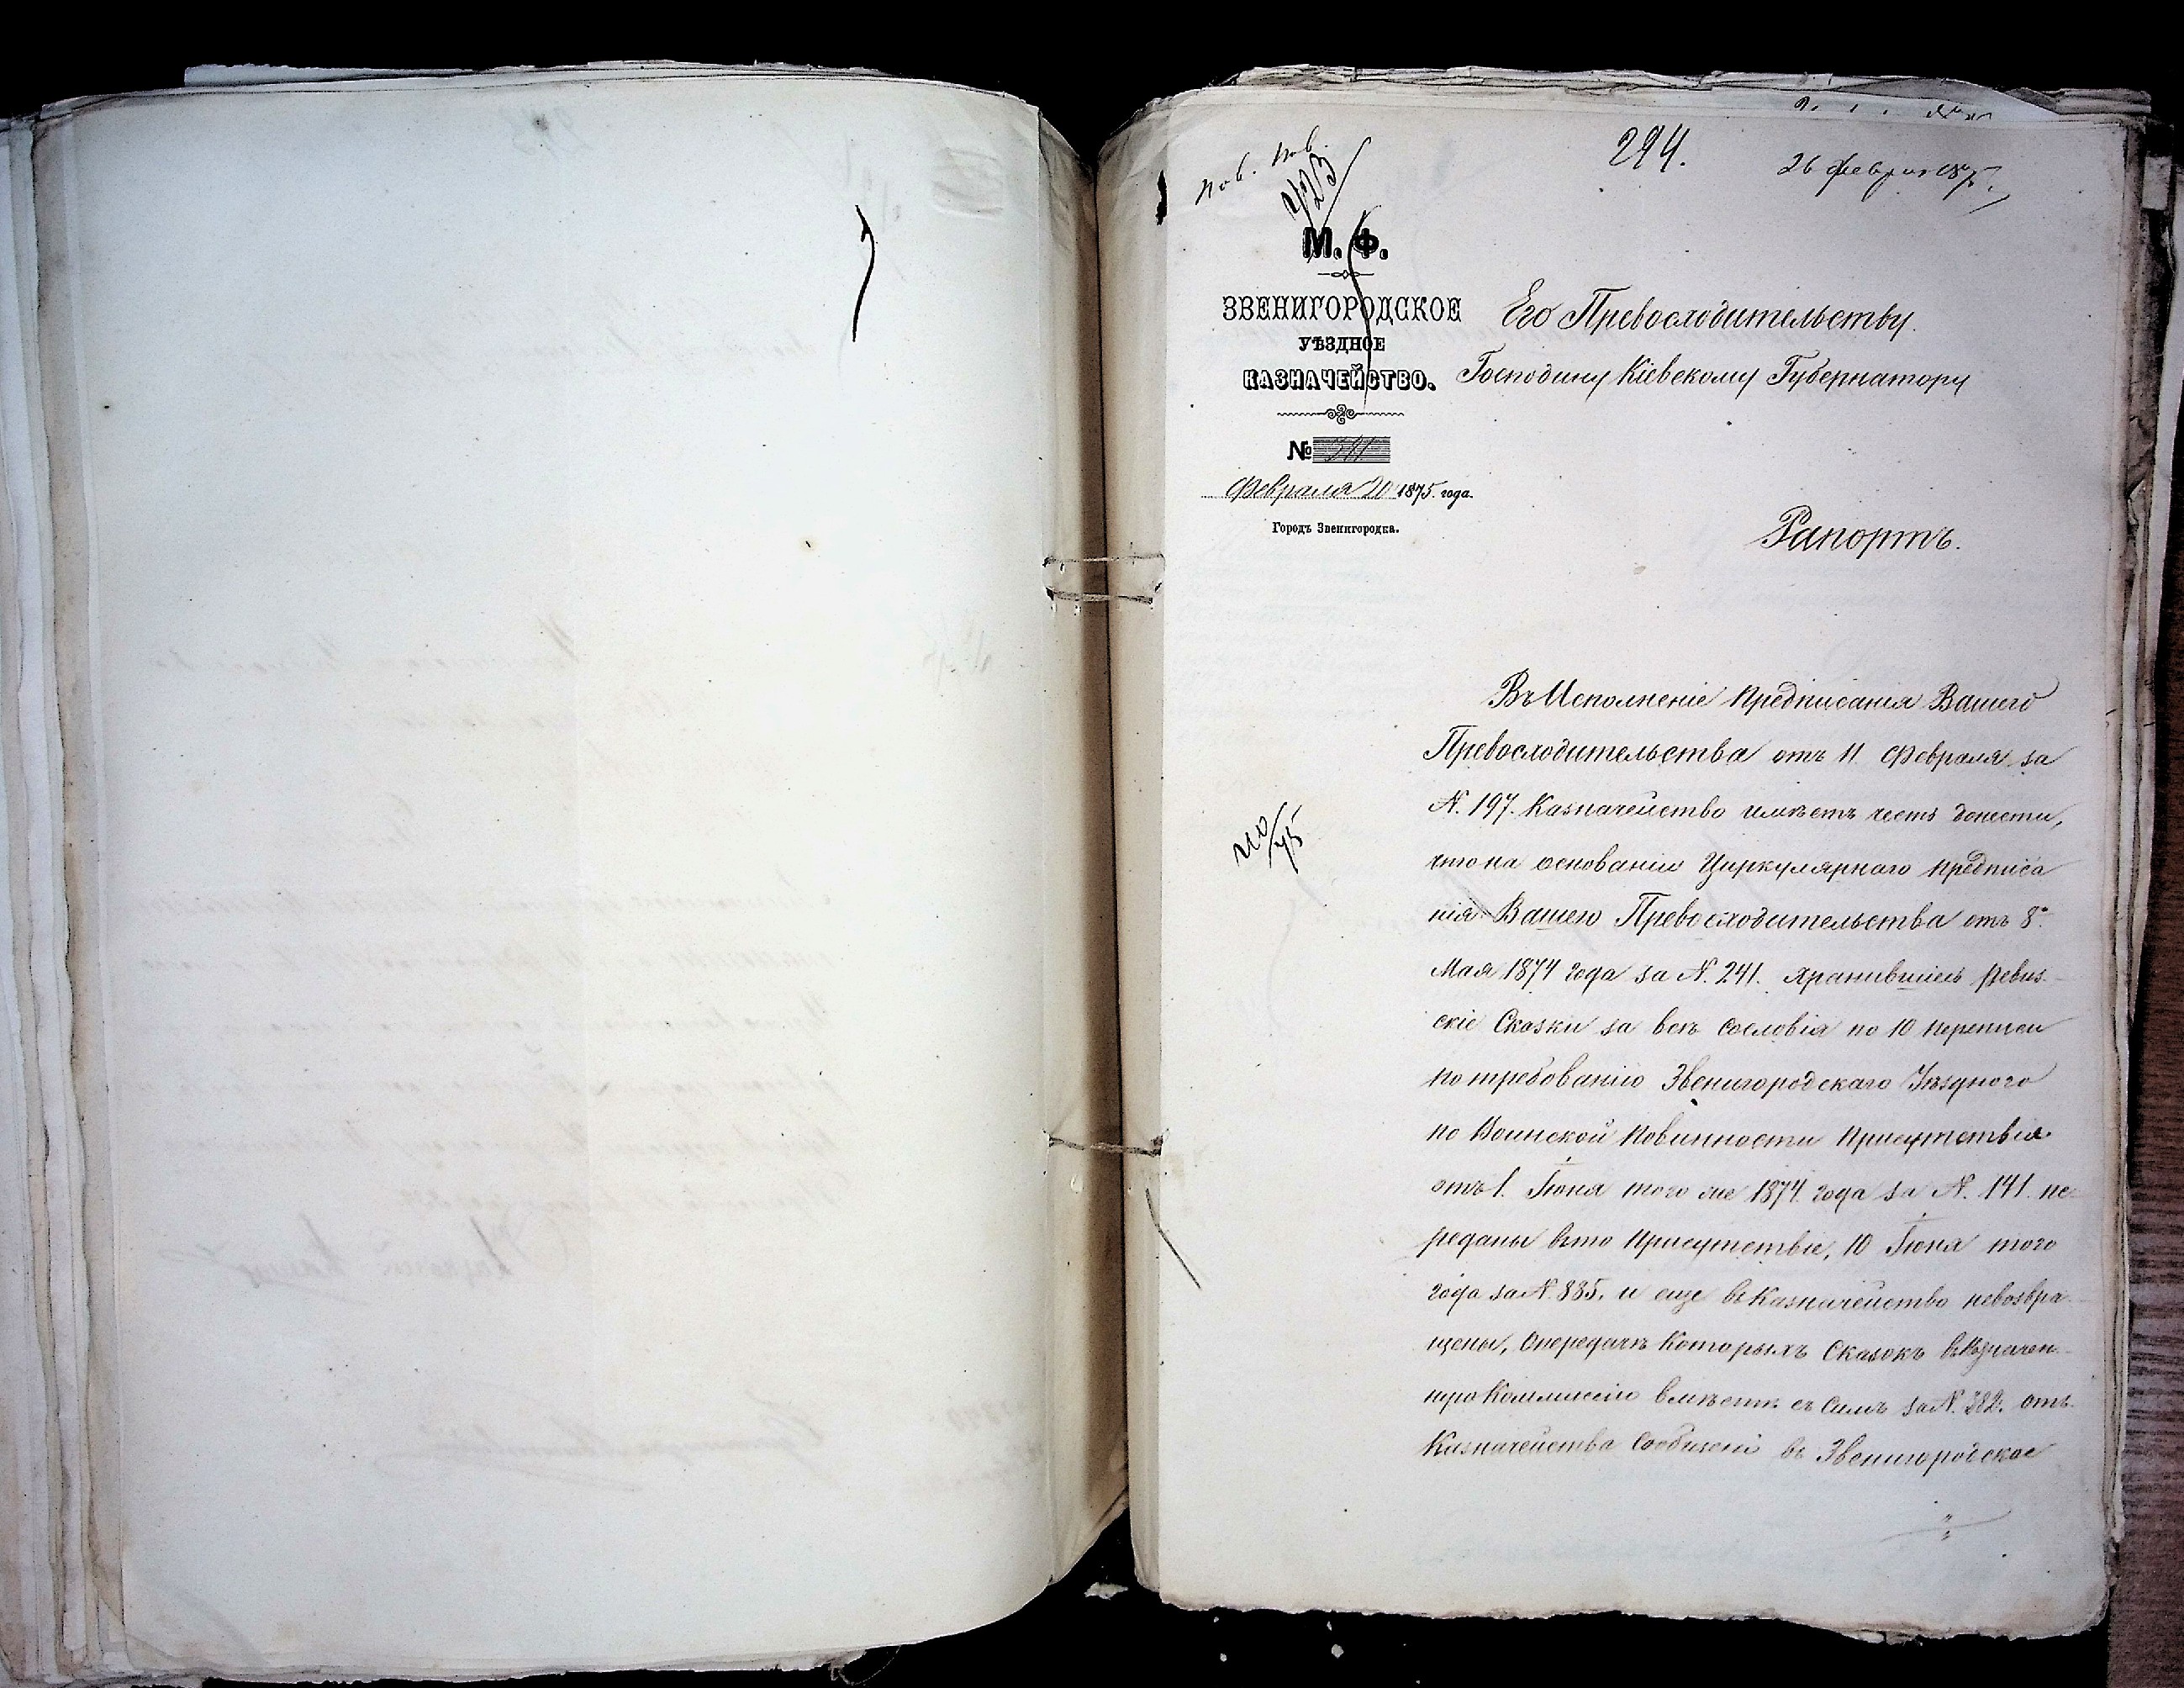 294.
26 февраля 1875.
Пов. Пов.
423
М. Ф.
ЗВЕНИГОРОДСКОЕ
УѢЗДНОЕ
КАЗНАЧЕЙСТВО.
№
Февраля 20 1875. года.
Городъ Звенигородка.
Его Превосходительству
Господину Кіевскому Губернатору
Рапортъ.
Въ Исполненіе Предписанія Вашего
Превосходительства отъ 11 Февраля за
N. 197. Казначейство имѣетъ честь донести,
что на основаніи Циркулярнаго предписа
нія Вашего Превосходительства отъ 8го
Мая 1874 года за N. 241. хранившіеся Ревиз-
скіе Сказки за всѣ сословія по 10 переписи
по требованію Звенигородскаго Уѣзднаго
по Воинской Повинности Присутствія
отъ 1. Іюня того же 1874 года за N. 141. пе-
реданы въ то Присутствіе, 10 Іюня того
года за N. 885. и еще въ Казначейство невозвра-
щены, О передачѣ Которыхъ Сказокъ въ
ную Коммисію вмѣстѣ съ Симъ за N. 382. отъ
Казначейства Сообщено въ Звенигородское